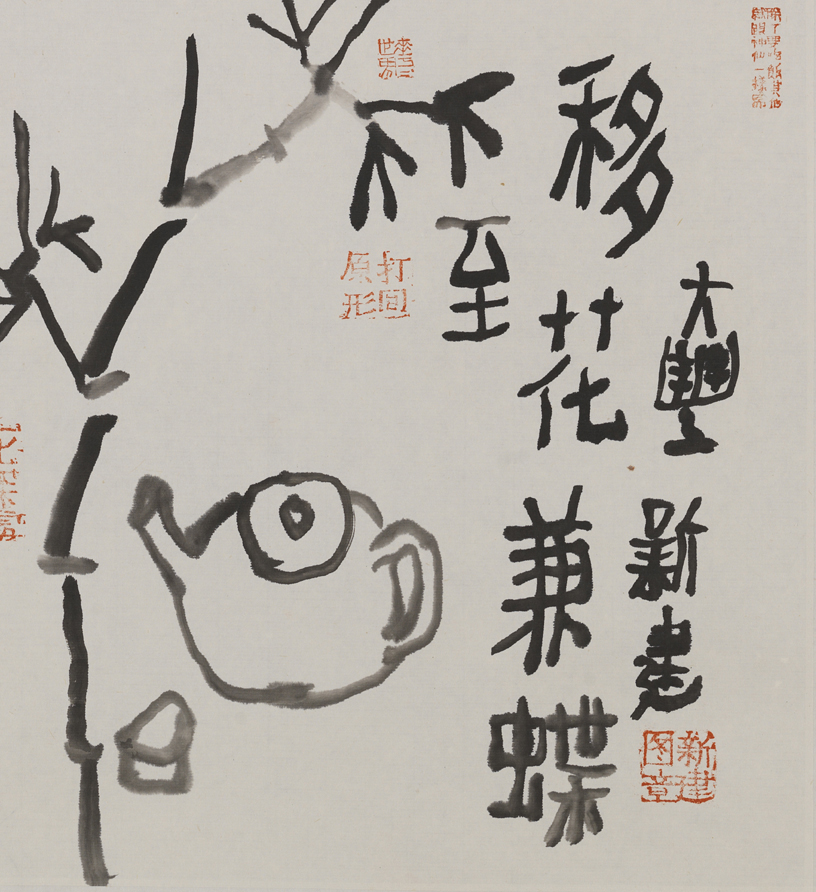 移花兼蝶
至
大豐 新建
新建图章
打回原形